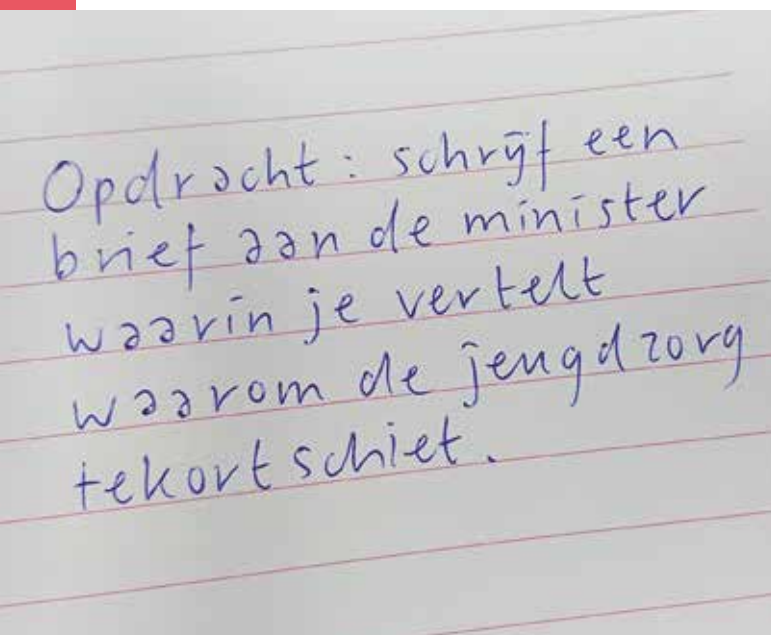 Opdracht: schrijf een
brief aan de minister
waarin je vertelt
waarom de jeugdzorg
tekort schiet.